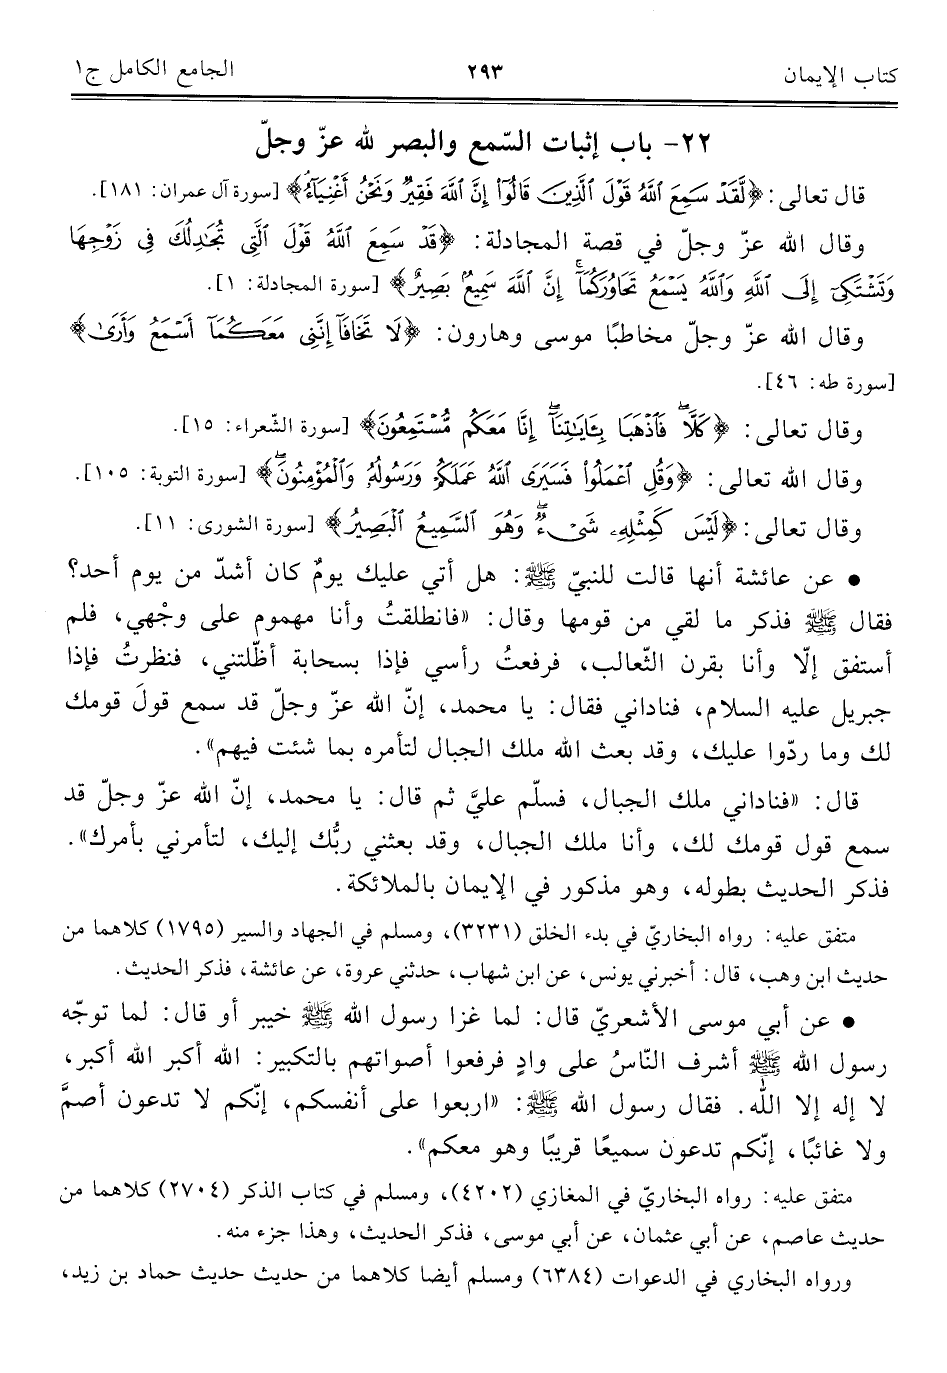 كتاب الإيمان ٢٩٣ الجامع الكامل ج١
٢٢- باب إثبات السّمع والبصر لله عزّ وجلّ
قال تعالى: ﴿لَّقَدْ سَمِعَ ٱللَّهُ قَوْلَ ٱلَّذِينَ قَالُوٓا۟ إِنَّ ٱللَّهَ فَقِيرٌ وَنَحْنُ أَغْنِيَآءُ﴾ [سورة آل عمران: ١٨١].
وقال الله عزّ وجلّ في قصة المجادلة: ﴿قَدْ سَمِعَ ٱللَّهُ قَوْلَ ٱلَّتِى تُجَٰدِلُكَ فِى زَوْجِهَا
وَتَشْتَكِىٓ إِلَى ٱللَّهِ وَٱللَّهُ يَسْمَعُ تَحَاوُرَكُمَآ ۚ إِنَّ ٱللَّهَ سَمِيعٌۢ بَصِيرٌ﴾ [سورة المجادلة: ١].
وقال الله عزّ وجلّ مخاطبًا موسى وهارون: ﴿لَا تَخَافَآ إِنَّنِى مَعَكُمَآ أَسْمَعُ وَأَرَىٰ﴾
[سورة طه: ٤٦].
وقال تعالى: ﴿كَلَّا ۖ فَٱذْهَبَا بِـَٔايَٰتِنَآ ۖ إِنَّا مَعَكُم مُّسْتَمِعُونَ﴾ [سورة الشّعراء: ١٥].
وقال الله تعالى: ﴿وَقُلِ ٱعْمَلُوا۟ فَسَيَرَى ٱللَّهُ عَمَلَكُمْ وَرَسُولُهُۥ وَٱلْمُؤْمِنُونَ ۖ﴾ [سورة التوبة: ١٠٥].
وقال تعالى: ﴿لَيْسَ كَمِثْلِهِۦ شَىْءٌ ۖ وَهُوَ ٱلسَّمِيعُ ٱلْبَصِيرُ﴾ [سورة الشورى: ١١].
• عن عائشة أنها قالت للنبيّ ﷺ: هل أتي عليك يومٌ كان أشدّ من يوم أحد؟
فقال ﷺ فذكر ما لقي من قومها وقال: «فانطلقتُ وأنا مهموم على وجْهي، فلم
أستفق إلّا وأنا بقرن الثّعالب، فرفعتُ رأسي فإذا بسحابة أظلّتني، فنظرتُ فإذا
جبريل عليه السلام، فناداني فقال: يا محمد، إنّ الله عزّ وجلّ قد سمع قولَ قومك
لك وما ردّوا عليك، وقد بعث الله ملك الجبال لتأمره بما شئت فيهم».
قال: «فناداني ملك الجبال، فسلّم عليَّ ثم قال: يا محمد، إنّ الله عزّ وجلّ قد
سمع قول قومك لك، وأنا ملك الجبال، وقد بعثني ربُّك إليك، لتأمرني بأمرك».
فذكر الحديث بطوله، وهو مذكور في الإيمان بالملائكة.
متفق عليه: رواه البخاريّ في بدء الخلق (٣٢٣١)، ومسلم في الجهاد والسير (١٧٩٥) كلاهما من
حديث ابن وهب، قال: أخبرني يونس، عن ابن شهاب، حدثني عروة، عن عائشة، فذكر الحديث.
• عن أبي موسى الأشعريّ قال: لما غزا رسول الله ﷺ خيبر أو قال: لما توجّه
رسول الله ﷺ أشرف النّاسُ على وادٍ فرفعوا أصواتهم بالتكبير: الله أكبر الله أكبر،
لا إله إلا الله. فقال رسول الله ﷺ: «اربعوا على أنفسكم، إنّكم لا تدعون أصمَّ
ولا غائبًا، إنّكم تدعون سميعًا قريبًا وهو معكم».
متفق عليه: رواه البخاريّ في المغازي (٤٢٠٢)، ومسلم في كتاب الذكر (٢٧٠٤) كلاهما من
حديث عاصم، عن أبي عثمان، عن أبي موسى، فذكر الحديث، وهذا جزء منه.
ورواه البخاري في الدعوات (٦٣٨٤) ومسلم أيضا كلاهما من حديث حديث حماد بن زيد،